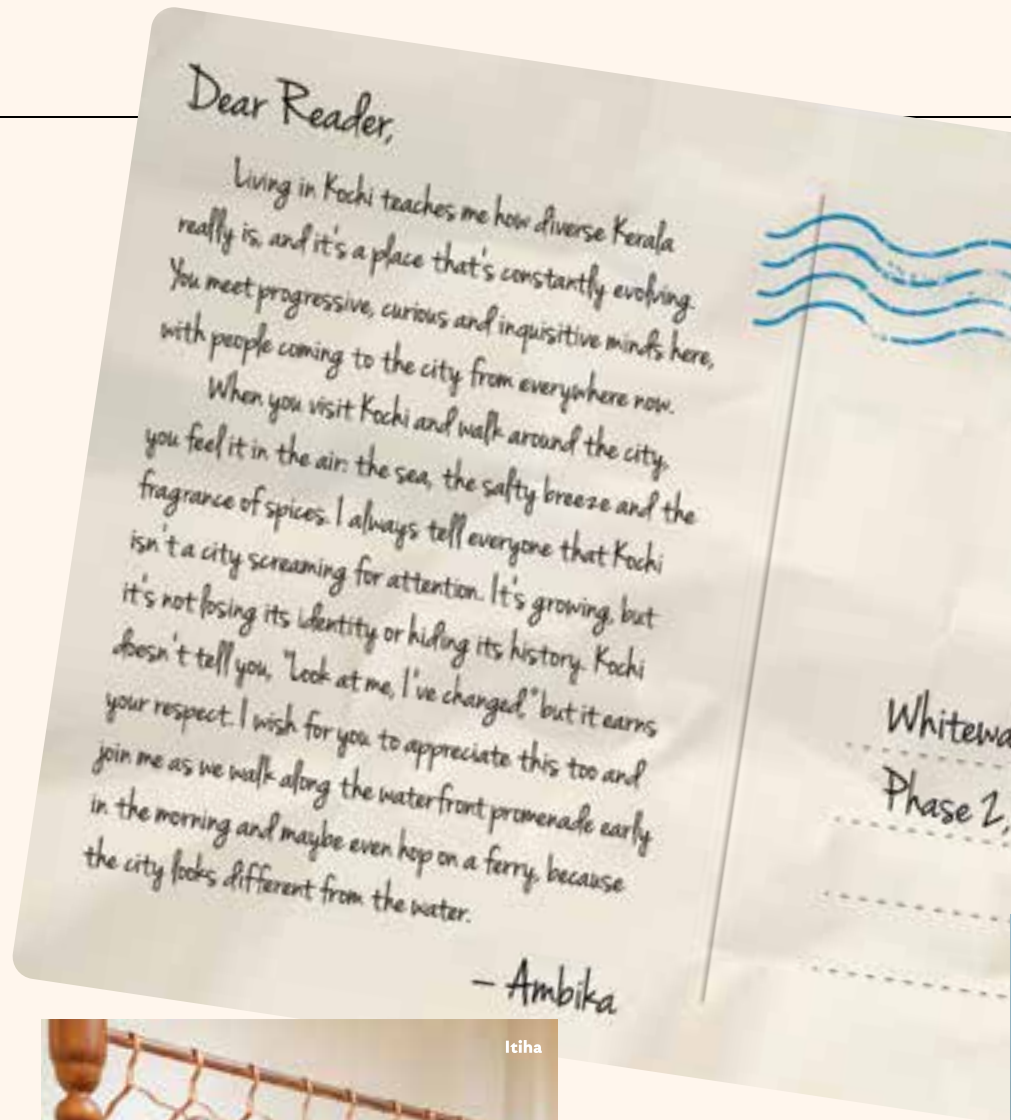 Dear Reader,
Living in Kochi teaches me how diverse Kerala
really is, and it's a place that's constantly evolving.
You meet progressive, curious and inquisitive minds here,
with people coming to the city from everywhere now.
When you visit Kochi and walk around the city,
you feel it in the air: the sea, the salty breeze and the
fragrance of spices. I always tell everyone that Kochi
isn't a city screaming for attention. It's growing, but
it's not losing its identity or hiding its history. Kochi
doesn't tell you, "Look at me, I've changed," but it earns
your respect. I wish for you to appreciate this too and
join me as we walk along the waterfront promenade early
in the morning and maybe even hop on a ferry, because
the city looks different from the water.
– Ambika
Whitewa
Phase 2,
Itiha